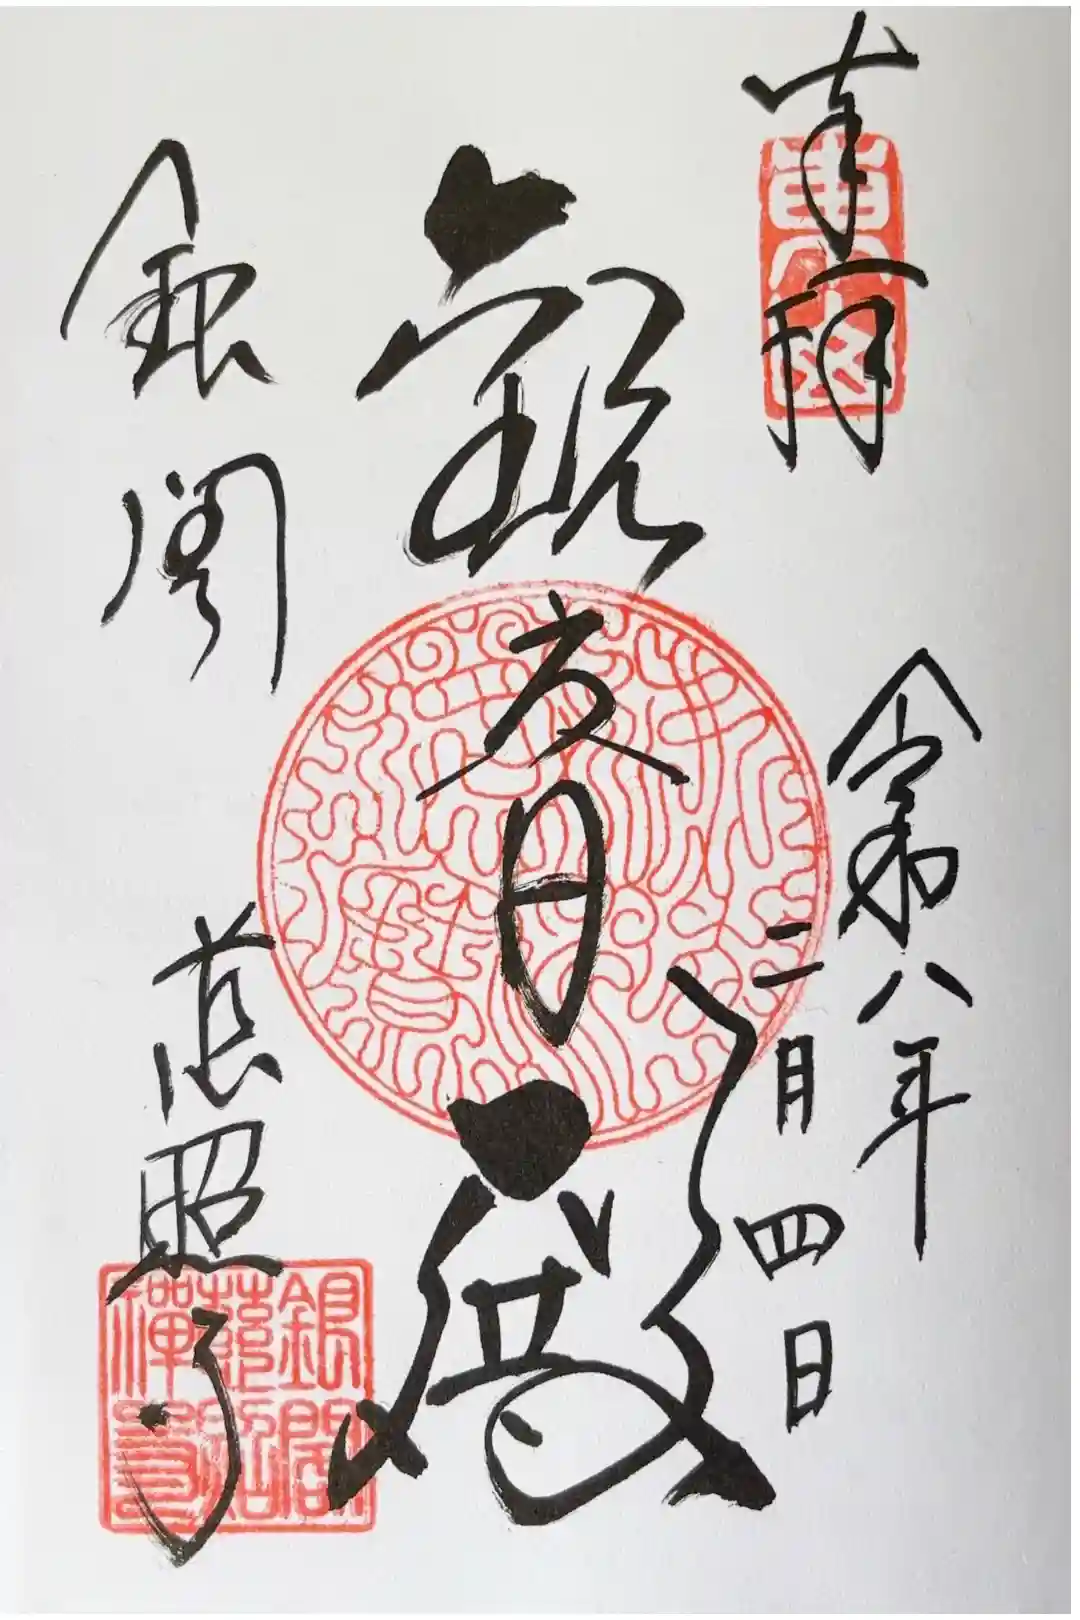 奉拝
令和八年
二月四日
観音殿
銀閣
慈照寺
銀閣
慈照
禪寺